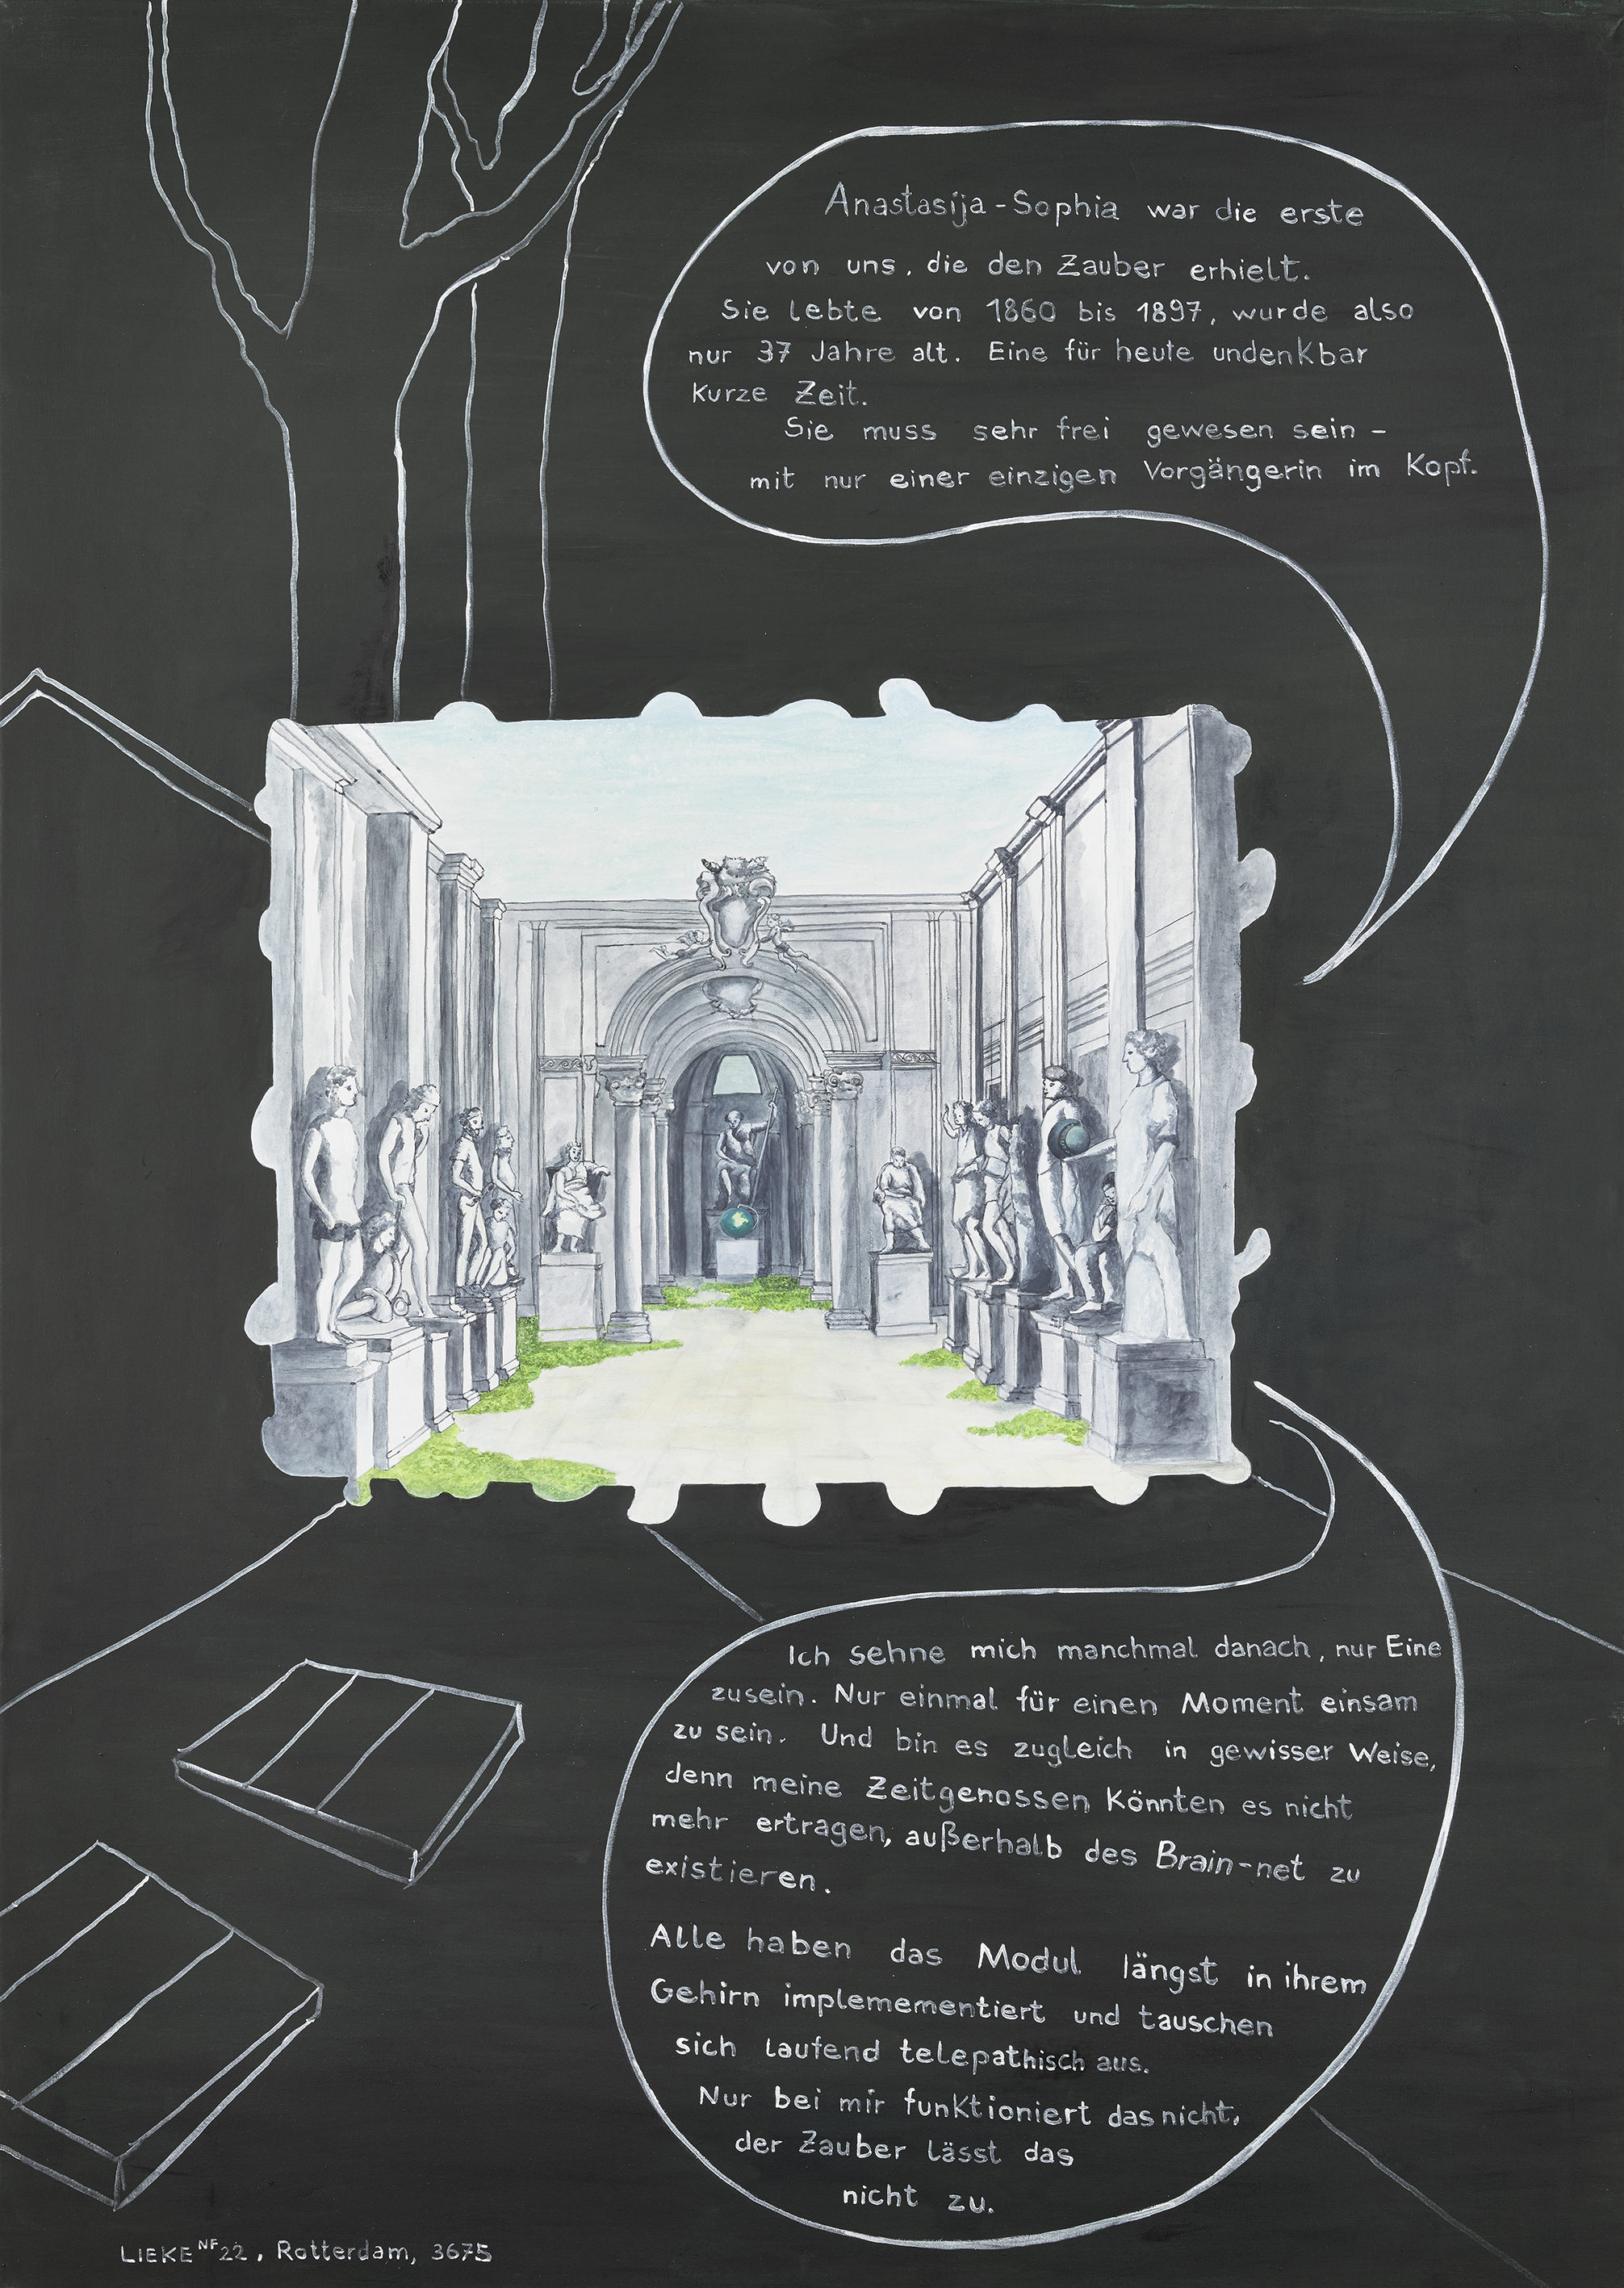 Anastasija-Sophia war die erste
von uns, die den Zauber erhielt.
Sie lebte von 1860 bis 1897, wurde also
nur 37 Jahre alt. Eine für heute undenkbar
kurze Zeit.
Sie muss sehr frei gewesen sein -
mit nur einer einzigen Vorgängerin im Kopf.
Ich sehne mich manchmal danach, nur Eine
zusein. Nur einmal für einen Moment einsam
zu sein. Und bin es zugleich in gewisser Weise,
denn meine Zeitgenossen könnten es nicht
mehr ertragen, außerhalb des Brain-net zu
existieren.
Alle haben das Modul längst in ihrem
Gehirn implemementiert und tauschen
sich laufend telepathisch aus.
Nur bei mir funktioniert das nicht,
der Zauber lässt das
nicht zu.
LIEKE NF22, Rotterdam, 3675